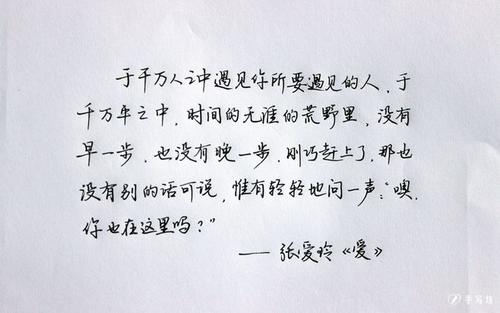 于千万人之中遇见你所要遇见的人,于
千万年之中,时间的无涯的荒野里,没有
早一步,也没有晚一步,刚巧赶上了,那也
没有别的话可说,惟有轻轻地问一声:“噢,
你也在这里吗?”
——张爱玲《爱》
手写坊